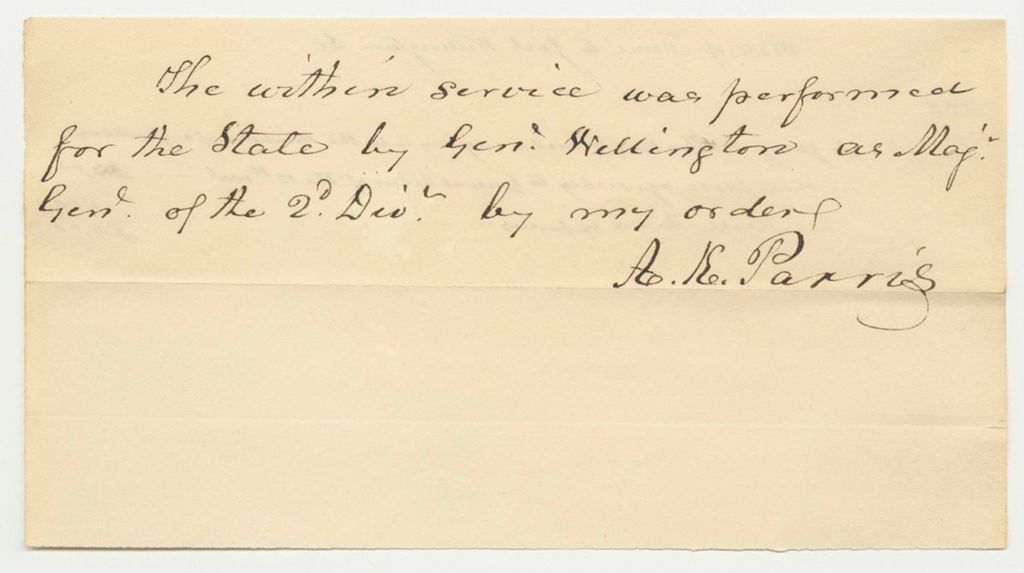 The within service was performed
for the State by Genl. Wellington as Maj.r
Genl. of the 2d. Divn. by my order
A. K. Parris